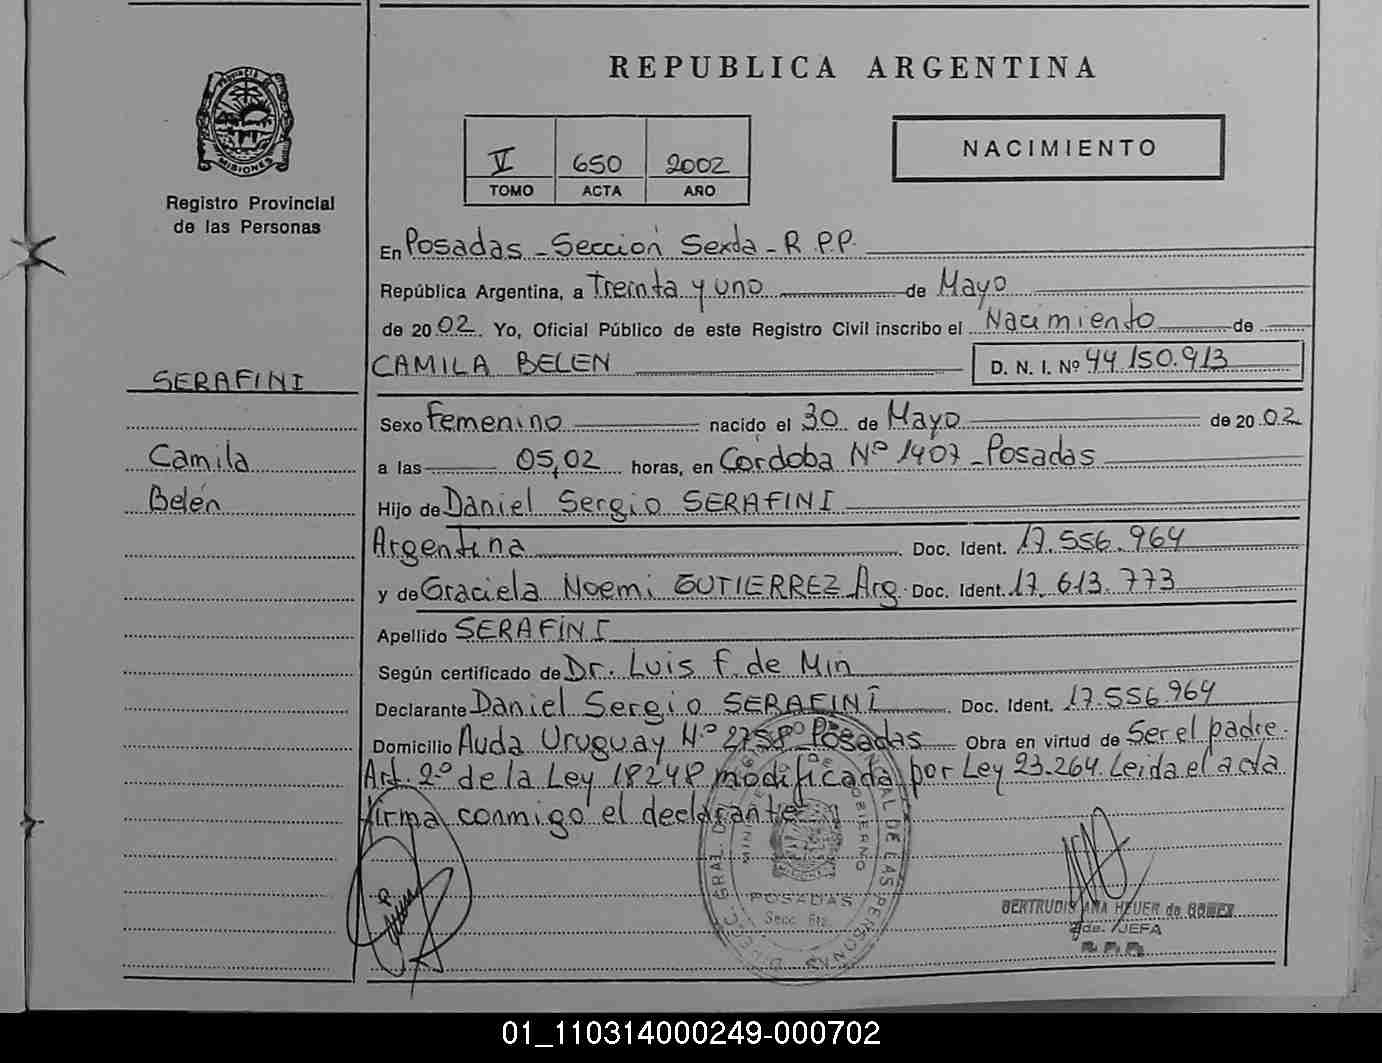 REPUBLICA ARGENTINA
PROVINCIA DE
MISIONES
Registro Provincial
de las Personas
V 650 2002
TOMO ACTA AÑO
NACIMIENTO
En Posadas - Sección Sexta - R.P.P.
República Argentina, a Treinta y uno de Mayo
de 2002. Yo, Oficial Público de este Registro Civil inscribo el Nacimiento de
CAMILA BELEN D. N. I. Nº 44.150.913
SERAFINI
Camila
Belén
Sexo Femenino nacido el 30 de Mayo de 2002
a las 05,02 horas, en Córdoba Nº 1407 - Posadas
Hijo de Daniel Sergio SERAFINI
Argentina Doc. Ident. 17.556.964
y de Graciela Noemi GUTIERREZ Arg. Doc. Ident. 17.613.773
Apellido SERAFINI
Según certificado de Dr. Luis F. de Min
Declarante Daniel Sergio SERAFINI Doc. Ident. 17.556.964
Domicilio Avda Uruguay Nº 2758 - Posadas Obra en virtud de Ser el padre.
Art. 2º de la Ley 18248 modificada por Ley 23.264. Leida el acta
firma conmigo el declarante
POSADAS
Secc. 6ta.
GERTRUDIS ANA HEUER de GOMEZ
2da. JEFA
R.P.P.
01_110314000249-000702